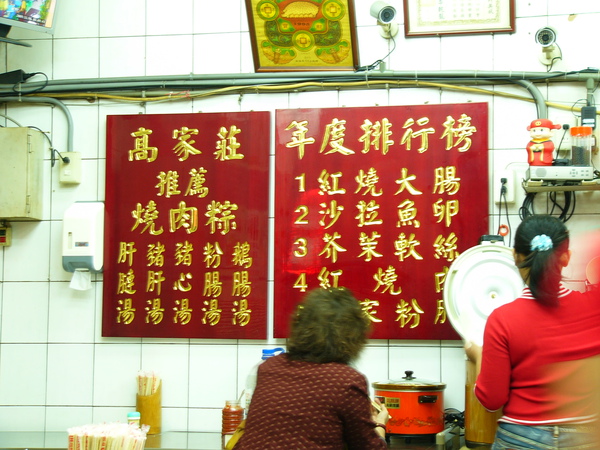 高家莊
推薦
燒肉粽
鵝腸湯
粉腸湯
豬心湯
豬肝湯
年度排行榜
1紅燒大腸
2沙拉魚卵
3芥茉軟絲
4紅燒肉
粉